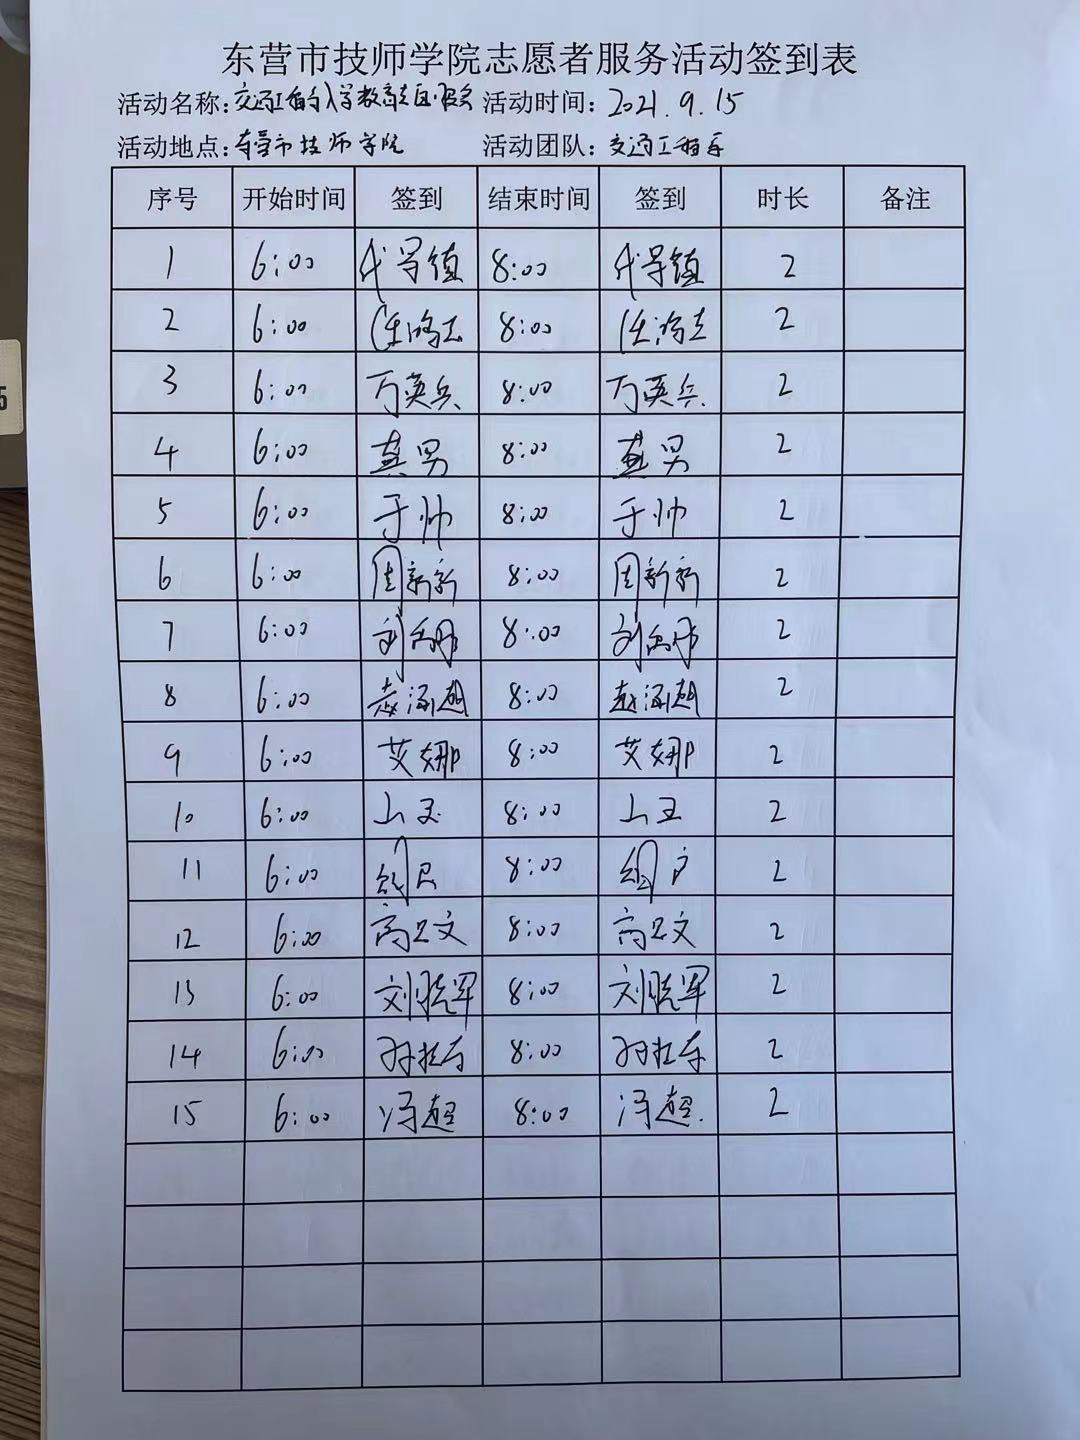 东营市技师学院志愿者服务活动签到表
活动名称：交通工程系入学教育志愿服务 活动时间：2021.9.15
活动地点：东营市技师学院 活动团队：交通工程系
序号 开始时间 签到 结束时间 签到 时长 备注
1 6:00 8:00 2
2 6:00 任鸿志 8:00 任鸿志 2
3 6:00 万英兵 8:00 万英兵 2
4 6:00 男 8:00 男 2
5 6:00 于帅 8:00 于帅 2
6 6:00 周新新 8:00 周新新 2
7 6:00 刘 8:00 刘 2
8 6:00 8:00 2
9 6:00 艾娜 8:00 艾娜 2
10 6:00 8:00 2
11 6:00 8:00 2
12 6:00 高卫文 8:00 高卫文 2
13 6:00 刘晓军 8:00 刘晓军 2
14 6:00 8:00 2
15 6:00 冯超 8:00 冯超 2